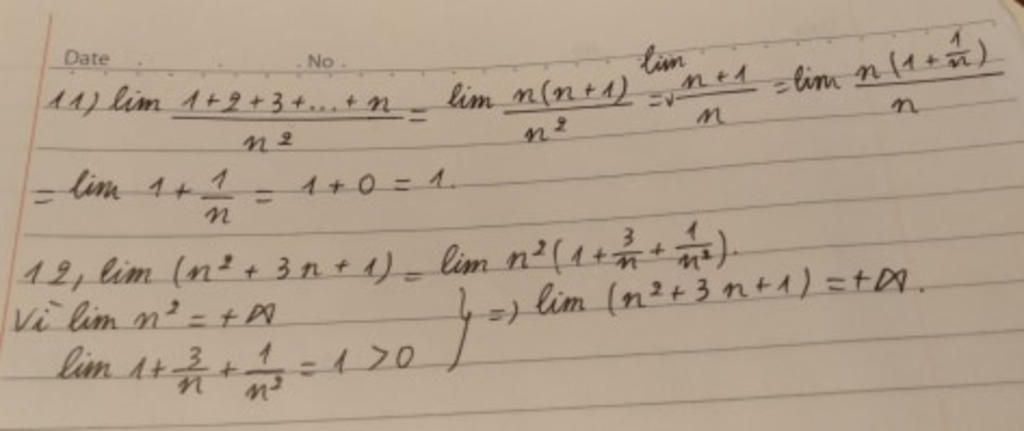 Date No.
11) lim (1+2+3+...+n)/n² = lim n(n+1)/n² = lim (n+1)/n = lim n(1+1/n)/n
= lim 1 + 1/n = 1+0 = 1.
12, lim (n² + 3n + 1) = lim n²(1 + 3/n + 1/n²).
Vì lim n² = +∞
lim 1 + 3/n + 1/n² = 1 > 0 } => lim (n² + 3n + 1) = +∞.